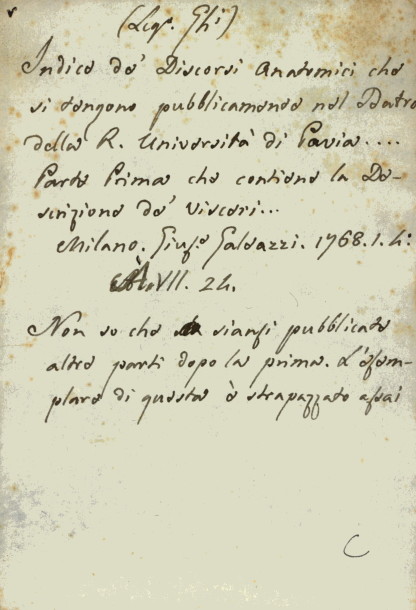 (Leg. Ghi)
Indice de' Discorsi Anatomici che
si tengono pubblicamente nel Teatro
della R. Università di Pavia....
Parte Prima che contiene la De-
scrizione de' Visceri...
Milano. Giuse Galeazzi. 1768. 1. 4:
VII. 24.
Non so che siansi pubblicate
altre parti dopo la prima. L'esem-
plare di questa è strapazzato assai
C